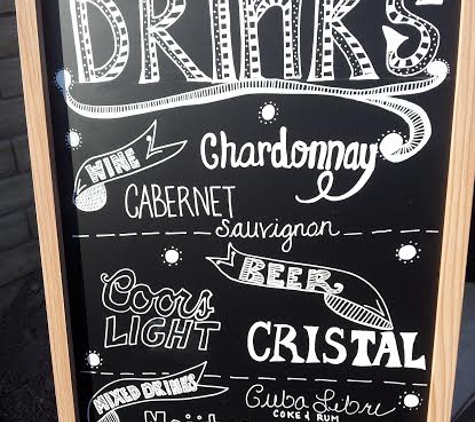 DRINKS
WINE
Chardonnay
CABERNET
Sauvignon
BEER
Coors
LIGHT
CRISTAL
MIXED DRINKS
Cuba Libre
COKE & RUM